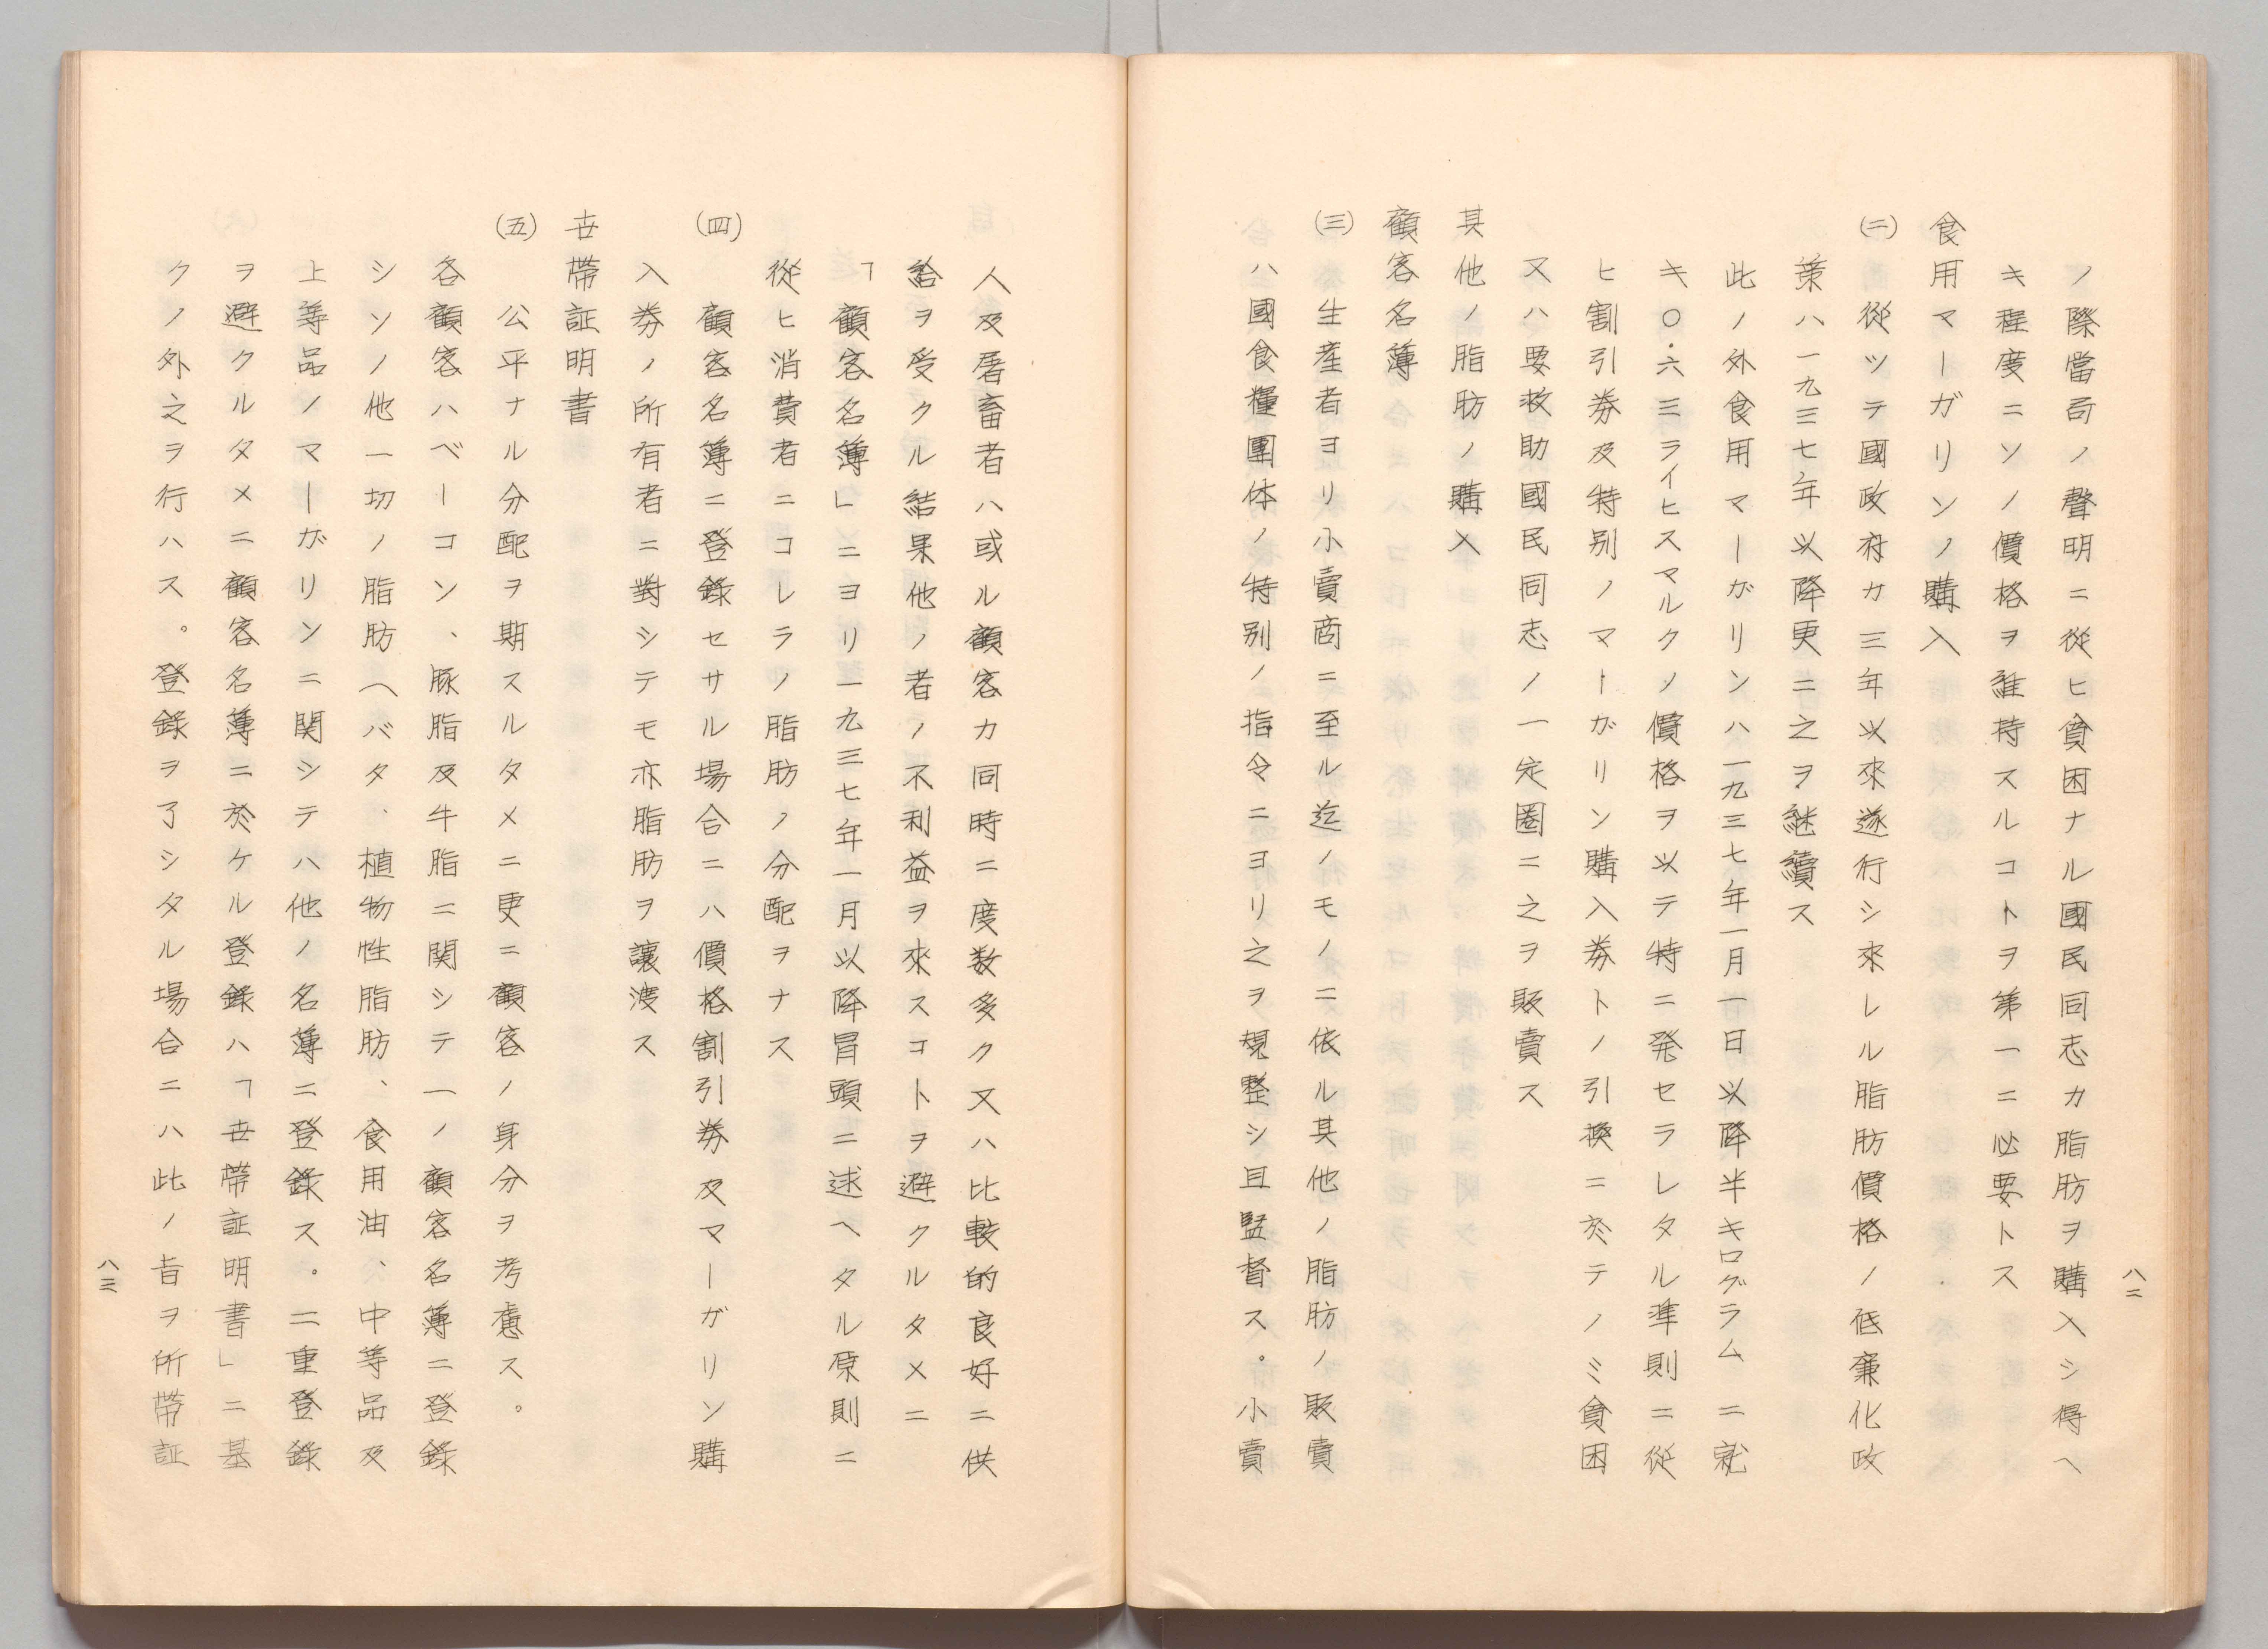 八二
ノ際當局ノ聲明ニ從ヒ貧困ナル國民同志カ脂肪ヲ購入シ得ヘ
キ程度ニソノ價格ヲ維持スルコトヲ第一ニ必要トス
食用マーガリンノ購入
(二)從ツテ國政府カ三年以來遂行シ來レル脂肪價格ノ低廉化政
策ハ一九三七年以降更ニ之ヲ継續ス
此ノ外食用マーガリンハ一九三七年一月一日以降半キログラムニ就
キ〇・六三ライヒスマルクノ價格ヲ以テ特ニ発セラレタル準則ニ從
ヒ割引券及特別ノマーガリン購入券トノ引換ニ於テノミ貧困
又ハ要救助國民同志ノ一定圏ニ之ヲ販賣ス
其他ノ脂肪ノ購入
顧客名薄
(三)生産者ヨリ小賣商ニ至ル迄ノモノニ依ル其他ノ脂肪ノ販賣
ハ國食糧團体ノ特別ノ指令ニヨリ之ヲ規整シ且監督ス。小賣
人及屠畜者ハ或ル顧客カ同時ニ度数多ク又ハ比較的良好ニ供
給ヲ受クル結果他ノ者ノ不利益ヲ來スコトヲ避クルタメニ
「顧客名薄」ニヨリ一九三七年一月以降冒頭ニ述ヘタル原則ニ
從ヒ消費者ニコレラノ脂肪ノ分配ヲナス
(四)顧客名薄ニ登錄セサル場合ニハ價格割引券及マーガリン購
入券ノ所有者ニ對シテモ亦脂肪ヲ讓渡ス
世帶証明書
(五)公平ナル分配ヲ期スルタメニ更ニ顧客ノ身分ヲ考慮ス。
各顧客ハベーコン、豚脂及牛脂ニ関シテ一ノ顧客名薄ニ登錄
シソノ他一切ノ脂肪(バタ、植物性脂肪、食用油、中等品及
上等品ノマーガリンニ関シテハ他ノ名薄ニ登錄ス。二重登錄
ヲ避クルタメニ顧客名薄ニ於ケル登錄ハ「世帶証明書」ニ基
クノ外之ヲ行ハス。登錄ヲ了シタル場合ニハ此ノ旨ヲ所帶証
八三